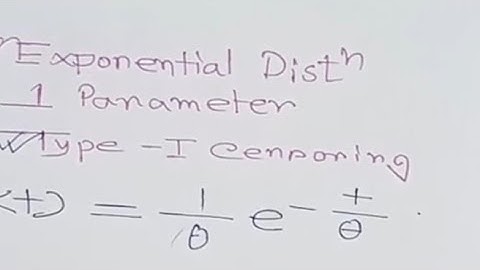 Exponential Distⁿ
1 Parameter
Type - I Censoring
(t) = 1/θ e^(-t/θ)